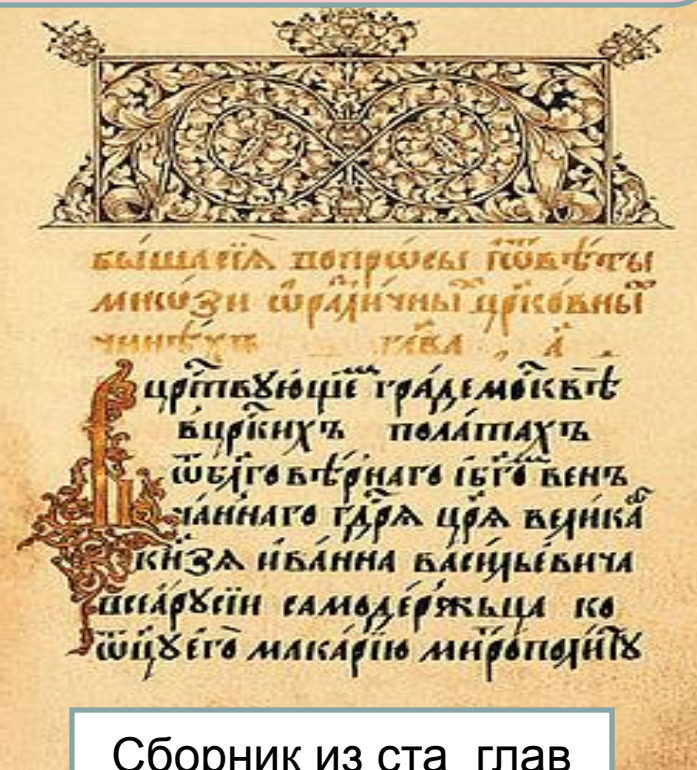 бы́ша сїѧ̀ вопро́сы ѿвѣ́ты
мно́ѕи ѡ разли́чны црко́вны
чинѣхъ глава̀ а҃
Въ црⷭ҇твꙋющеⷨ гра́де москвѣ̀
въ црⷭ҇кихъ пола́тахъ
ѿ бл҃говѣ́рнаго и бг҃овен
ча́ннаго гдⷭ҇рѧ цр҃ѧ вели́каⷢ҇
кнѧ́зѧ ива́нна васи́льевича
всеѧ̀ рꙋсїи самоде́ржьца ко
ѿц҃ꙋ его̀ мака́рїю митрополи́тꙋ
Сборник из ста глав